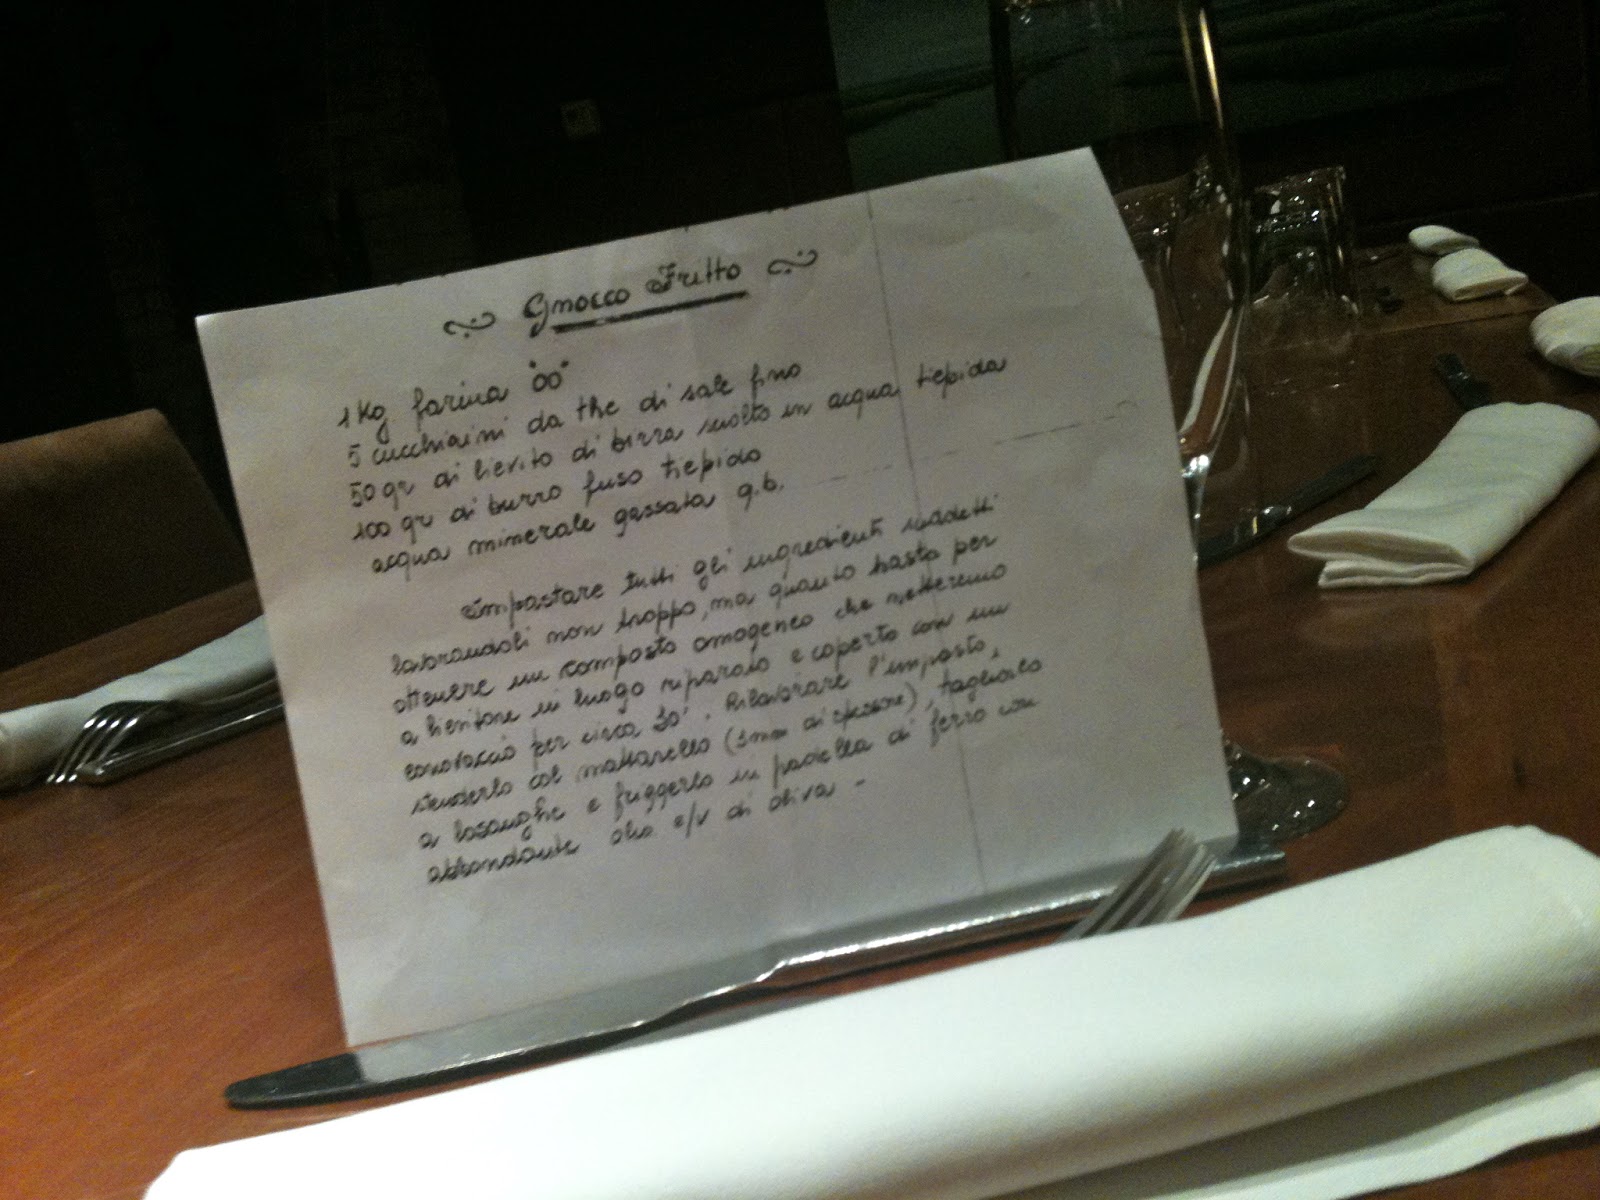 Gnocco Fritto
1 Kg. farina "00"
5 cucchiaini da the di sale fino
50 gr di lievito di birra sciolto in acqua tiepida
100 gr di burro fuso tiepido
acqua minerale gassata q.b.
Impastare tutti gli ingredienti suddetti
lavorandoli non troppo, ma quanto basta per
ottenere un composto omogeneo che metteremo
a lievitare in luogo riparato e coperto con un
canovaccio per circa 30'. Rilavorare l'impasto,
stenderlo col mattarello (3 mm di spessore), tagliarlo
a losanghe e friggerlo in padella di ferro con
abbondante olio e/v di oliva -